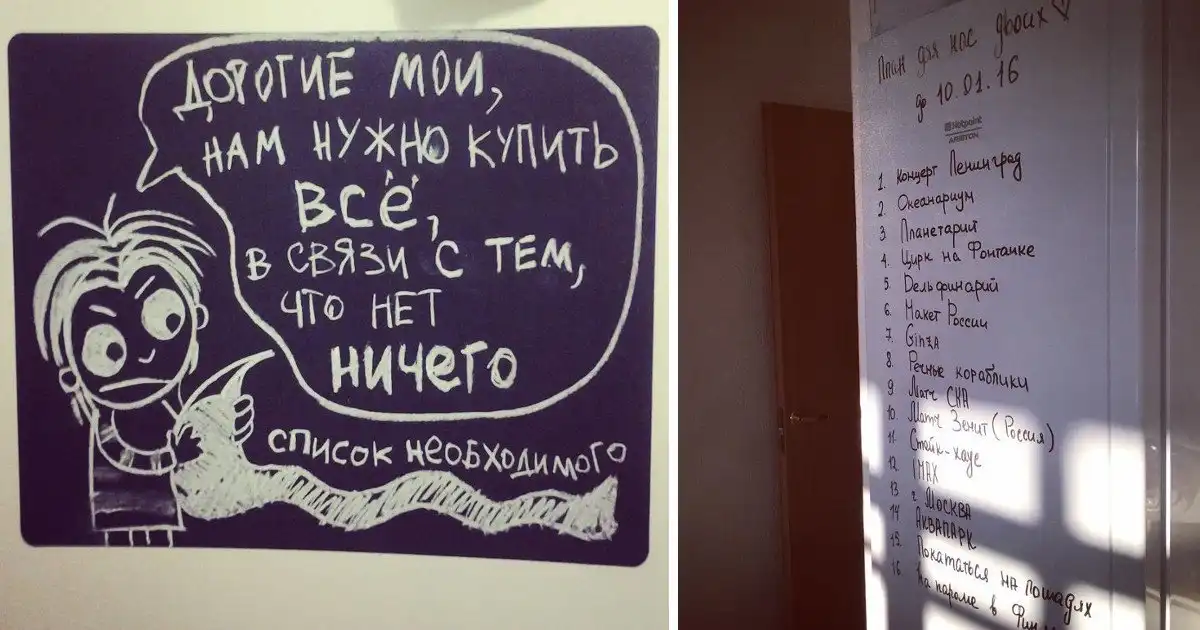 ДОРОГИЕ МОИ,
НАМ НУЖНО КУПИТЬ
ВСЁ,
В СВЯЗИ С ТЕМ,
ЧТО НЕТ
НИЧЕГО
СПИСОК НЕОБХОДИМОГО
План для нас двоих
до 10.01.16
Hotpoint
ARISTON
1. Концерт Ленинград
2. Океанариум
3. Планетарий
4. Цирк на Фонтанке
5. Дельфинарий
6. Макет России
7. Ginza
8. Речные кораблики
9. Матч СКА
10. Матч Зенит (Россия)
11. Стейк-хаус
12. IMAX
13. г. Москва
14. АКВАПАРК
15. Покататься на лошадях
16. На пароме в